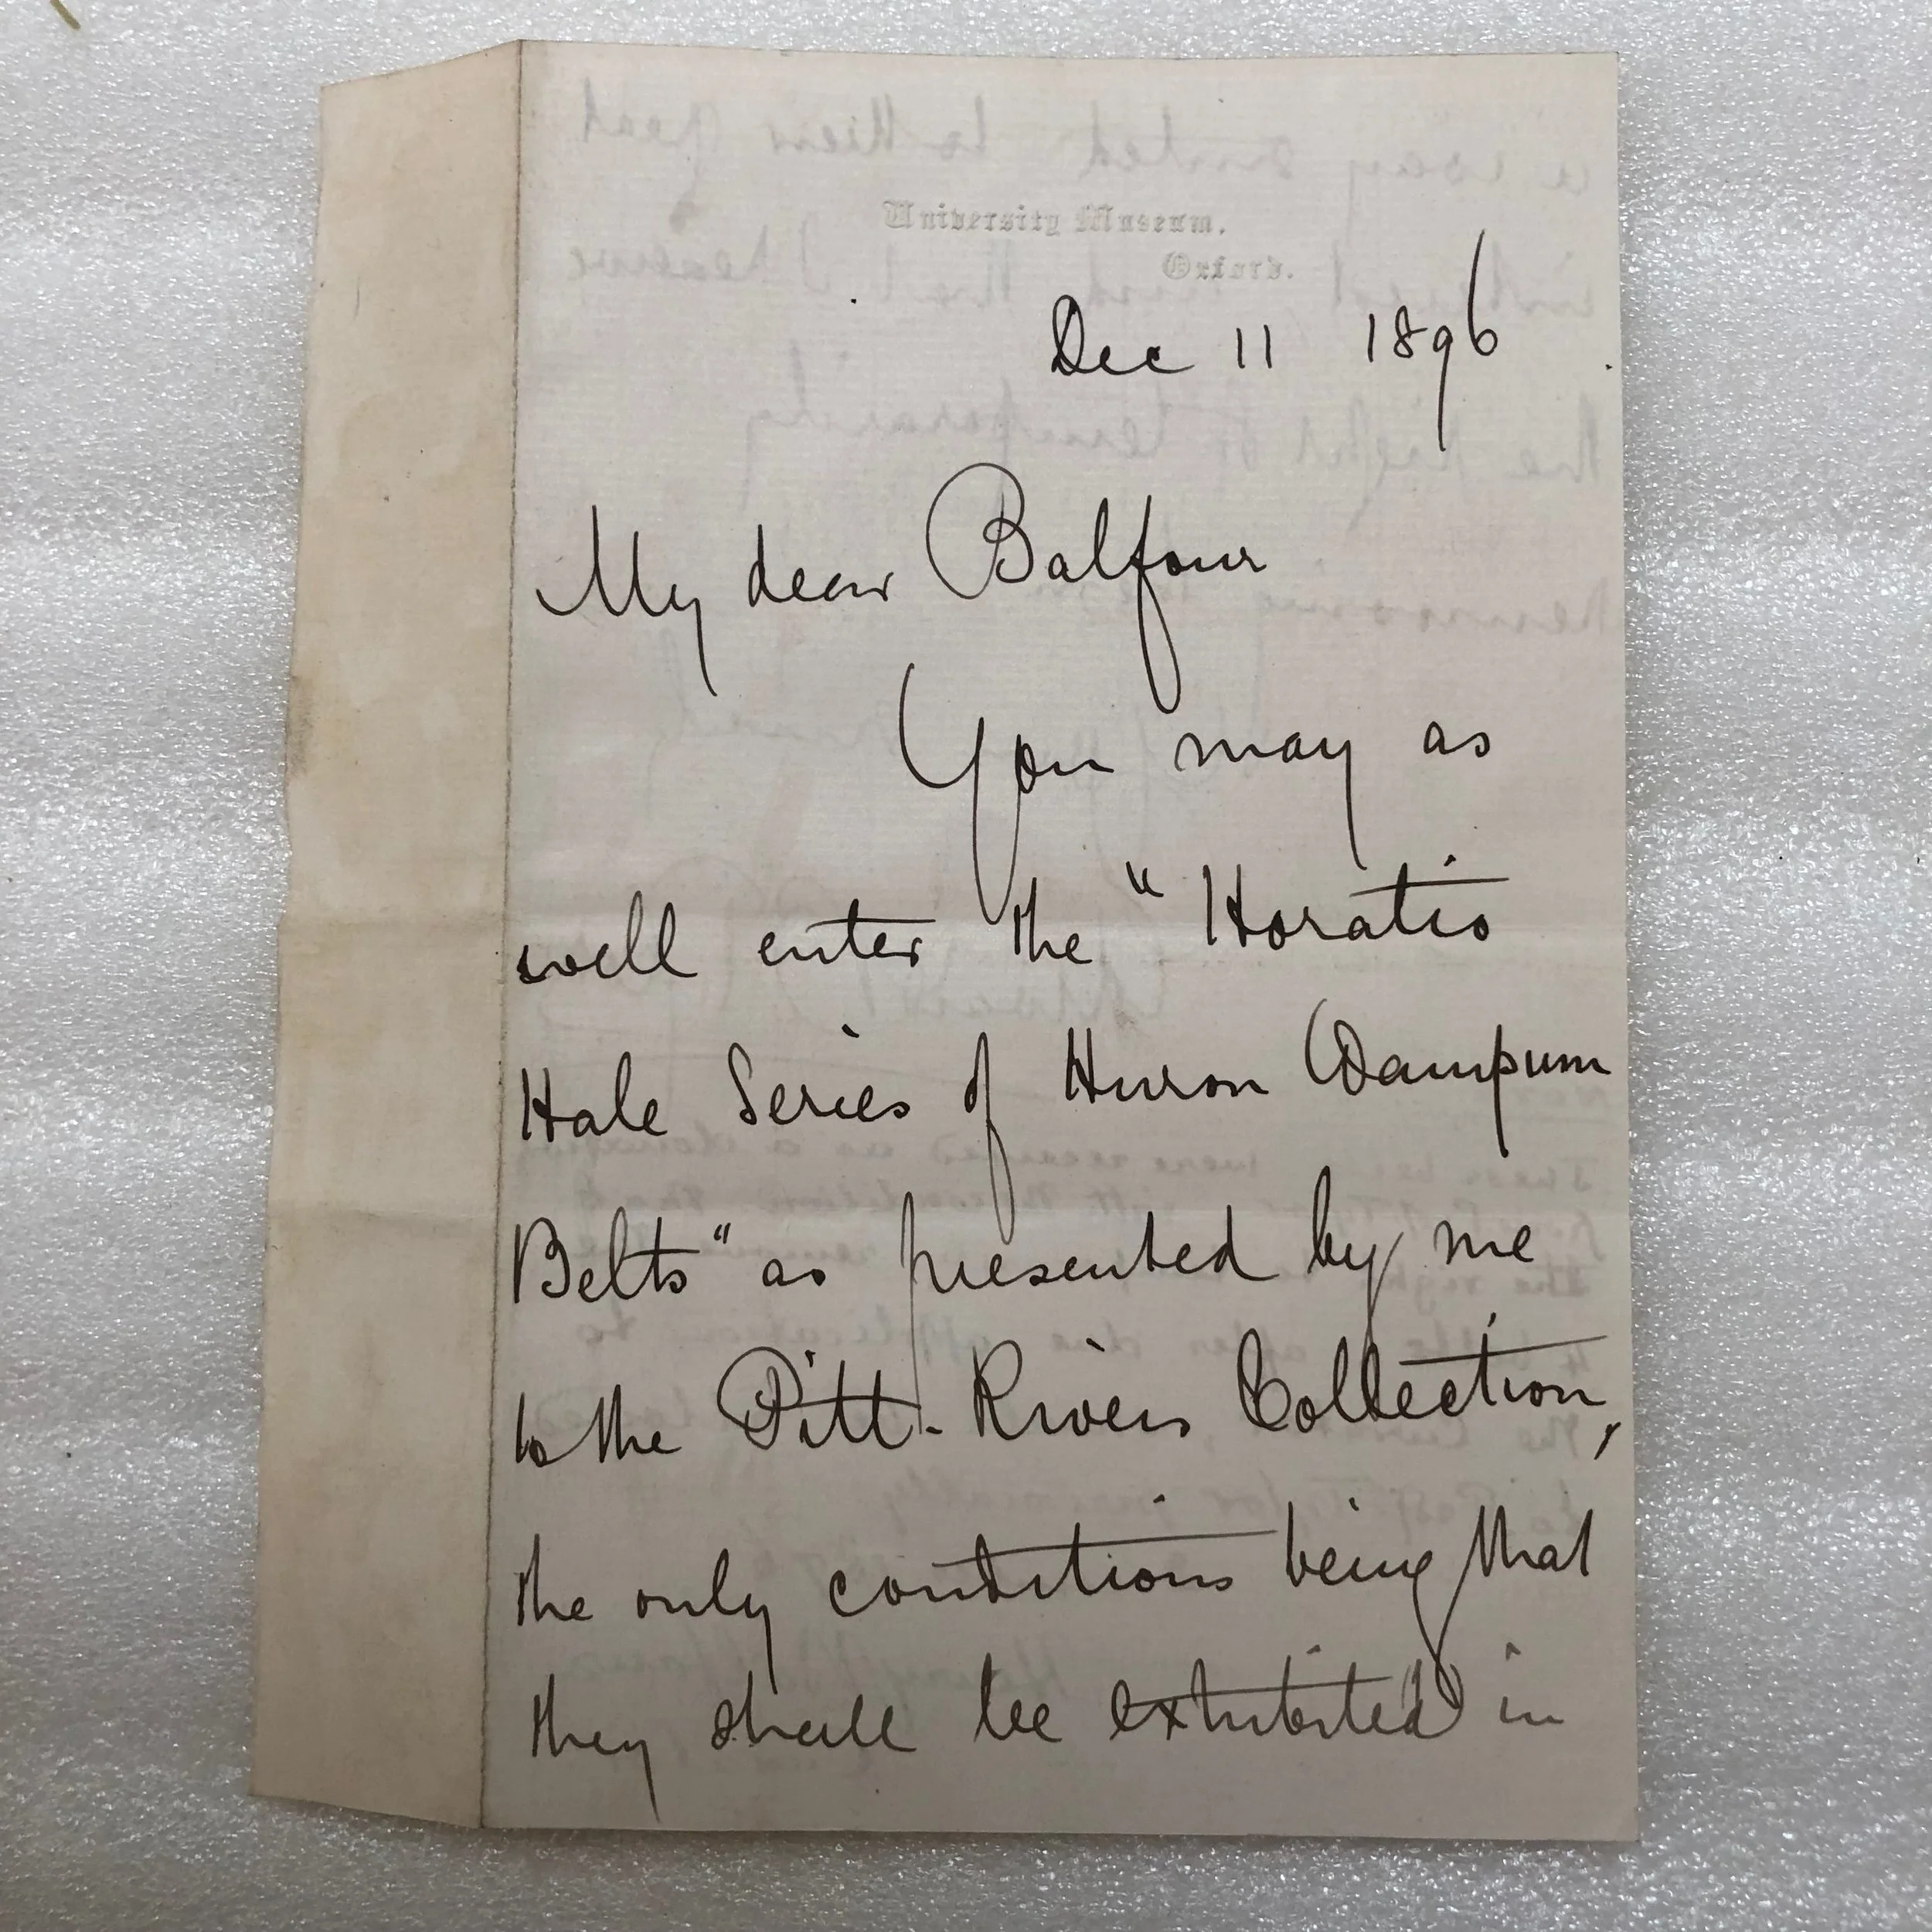 University Museum.
Oxford.
Dec 11 1896
My dear Balfour
You may as
well enter the "Horatio
Hale Series of Huron Wampum
Belts" as presented by me
to the Pitt-Rivers Collection,
the only conditions being that
they shall be exhibited in